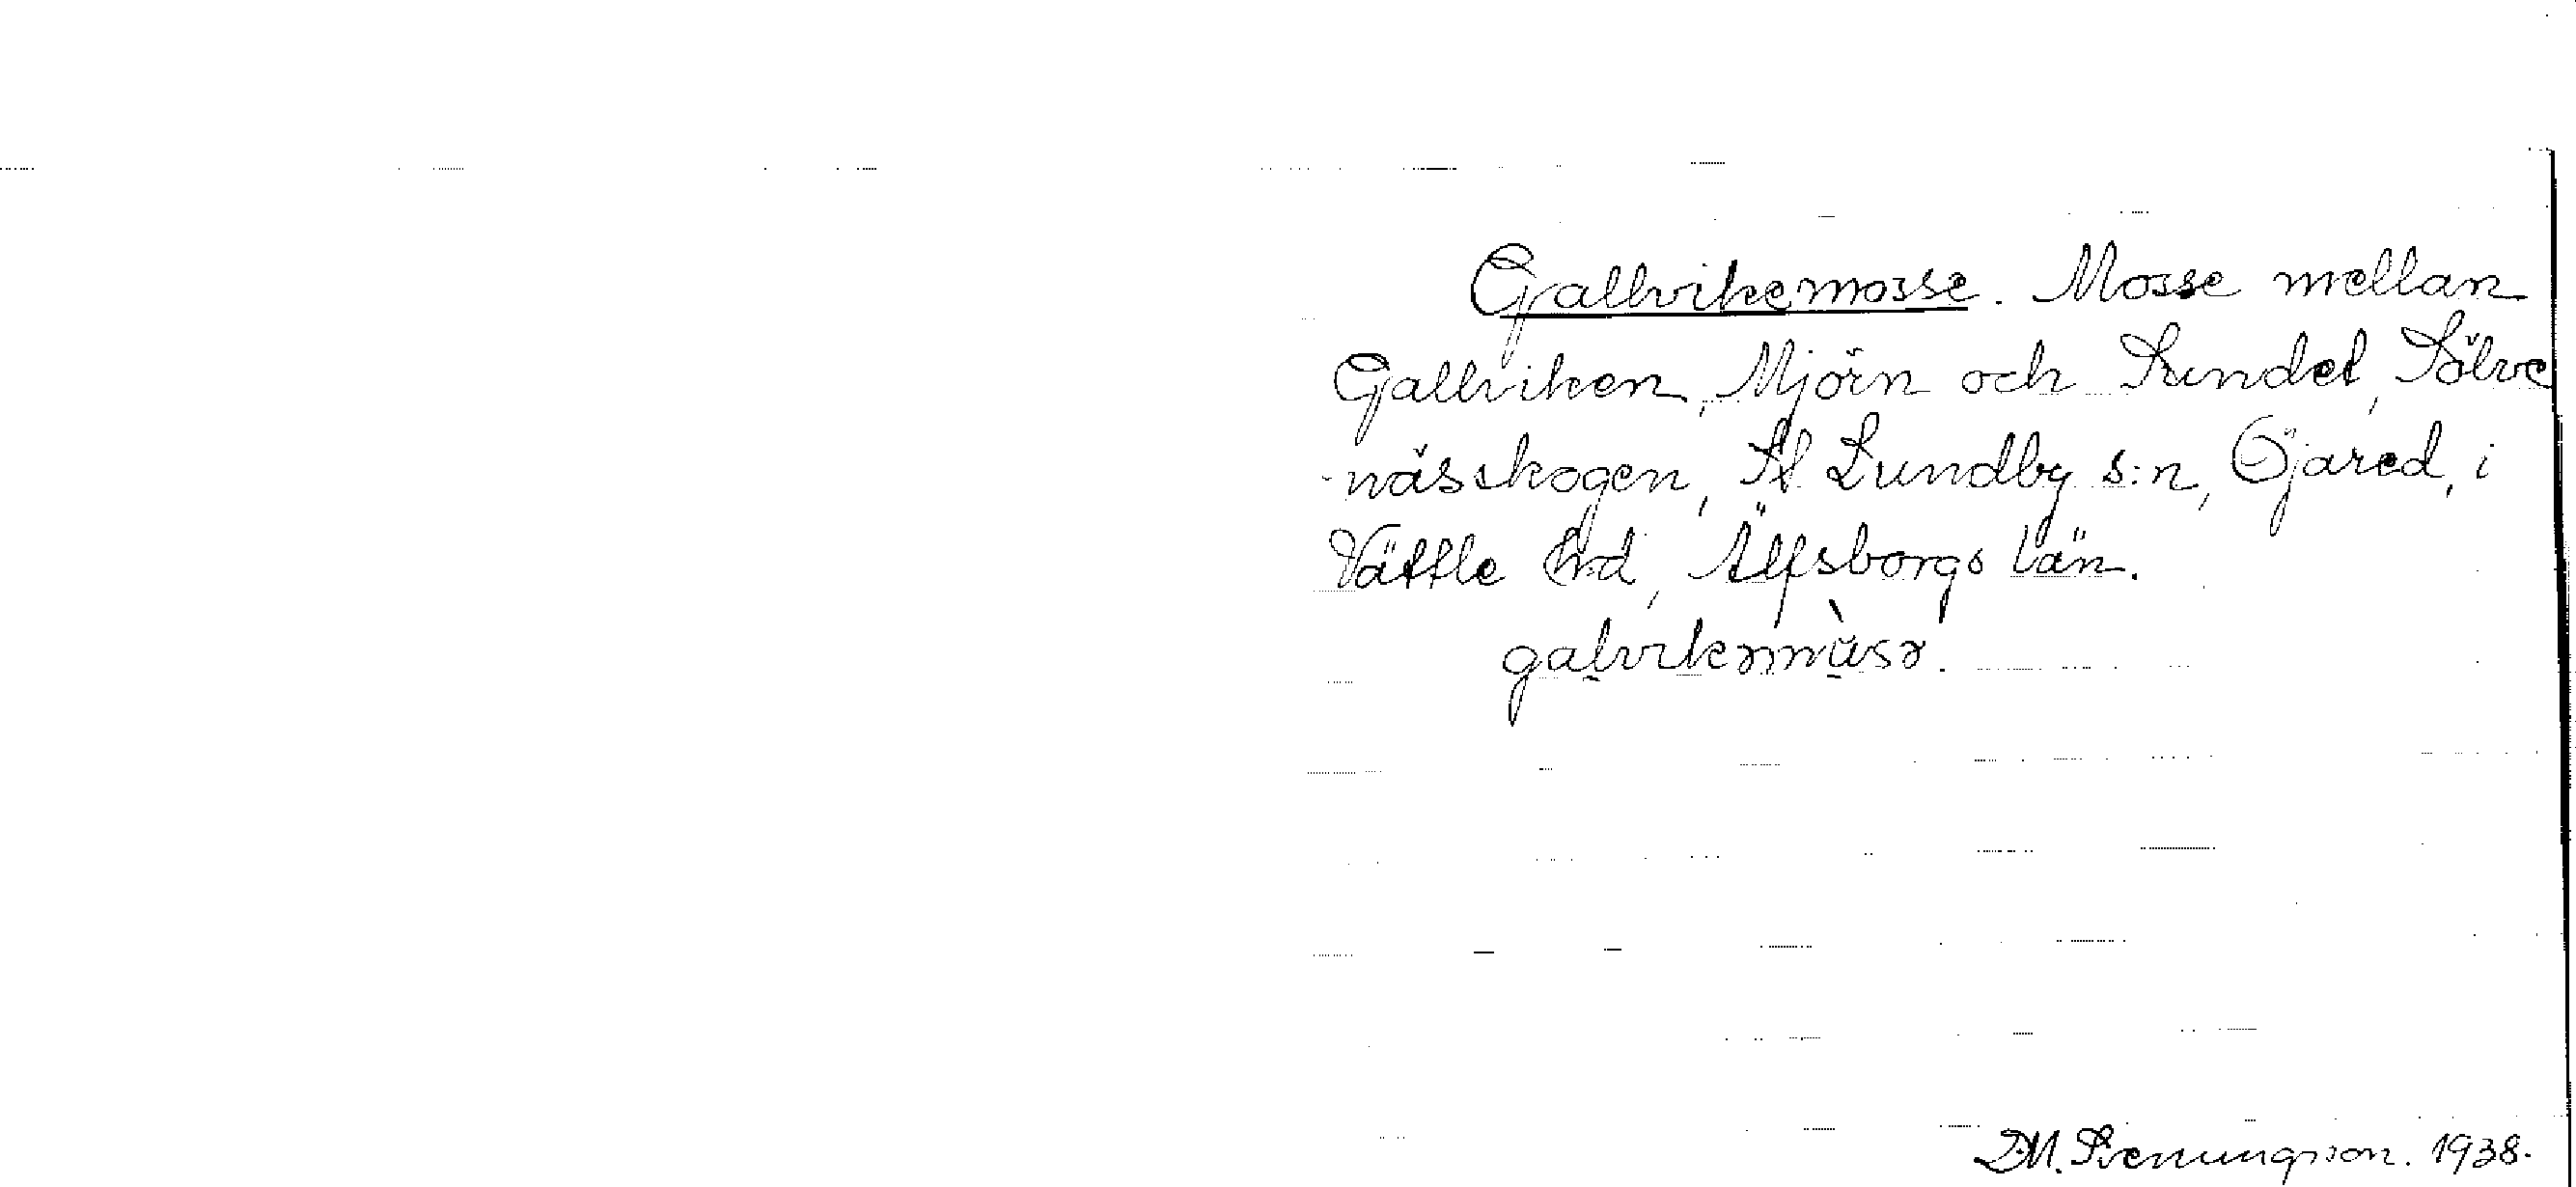 Gallvikemosse. Mosse mellan
Gallviken, Mjörn och Sundet, Sölve
-nässkogen, St Lundby s:n, Öjared, i
Vättle hrd, Älfsborgs län.
galvikəmùsə.
D.M. Svenungsson. 1938.